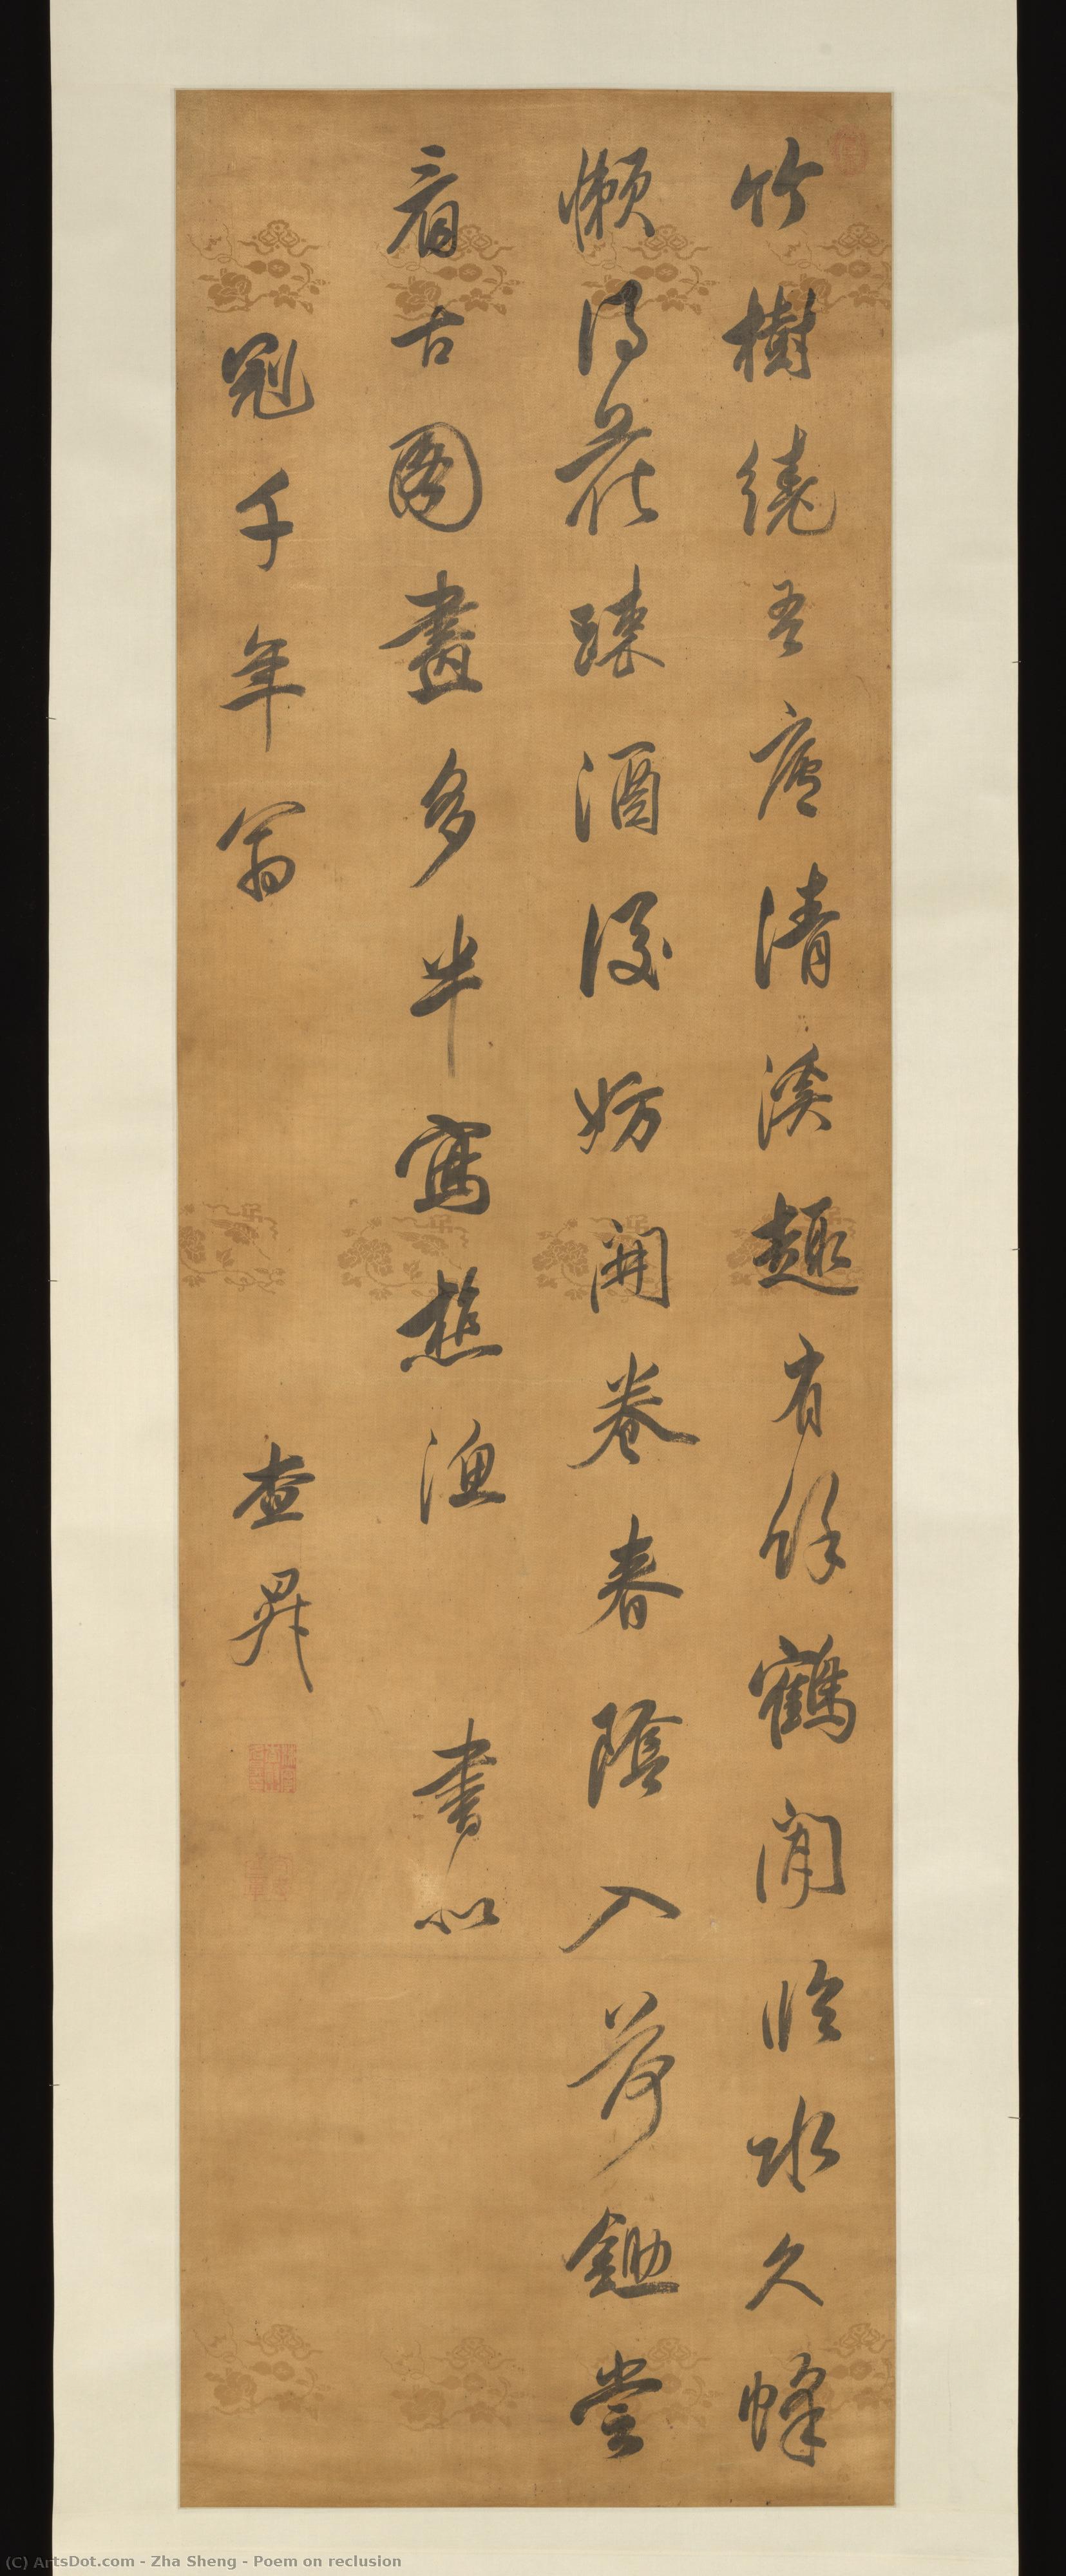 竹樹繞吾廬清溪趣有餘鶴閒臨水久蜂
懶得花疎酒後妨開卷春陰入荷鋤嘗
看古圖畫多半寫樵漁 書似
冠千年翁 查昇
(C) ArtsDot.com - Zha Sheng - Poem on reclusion